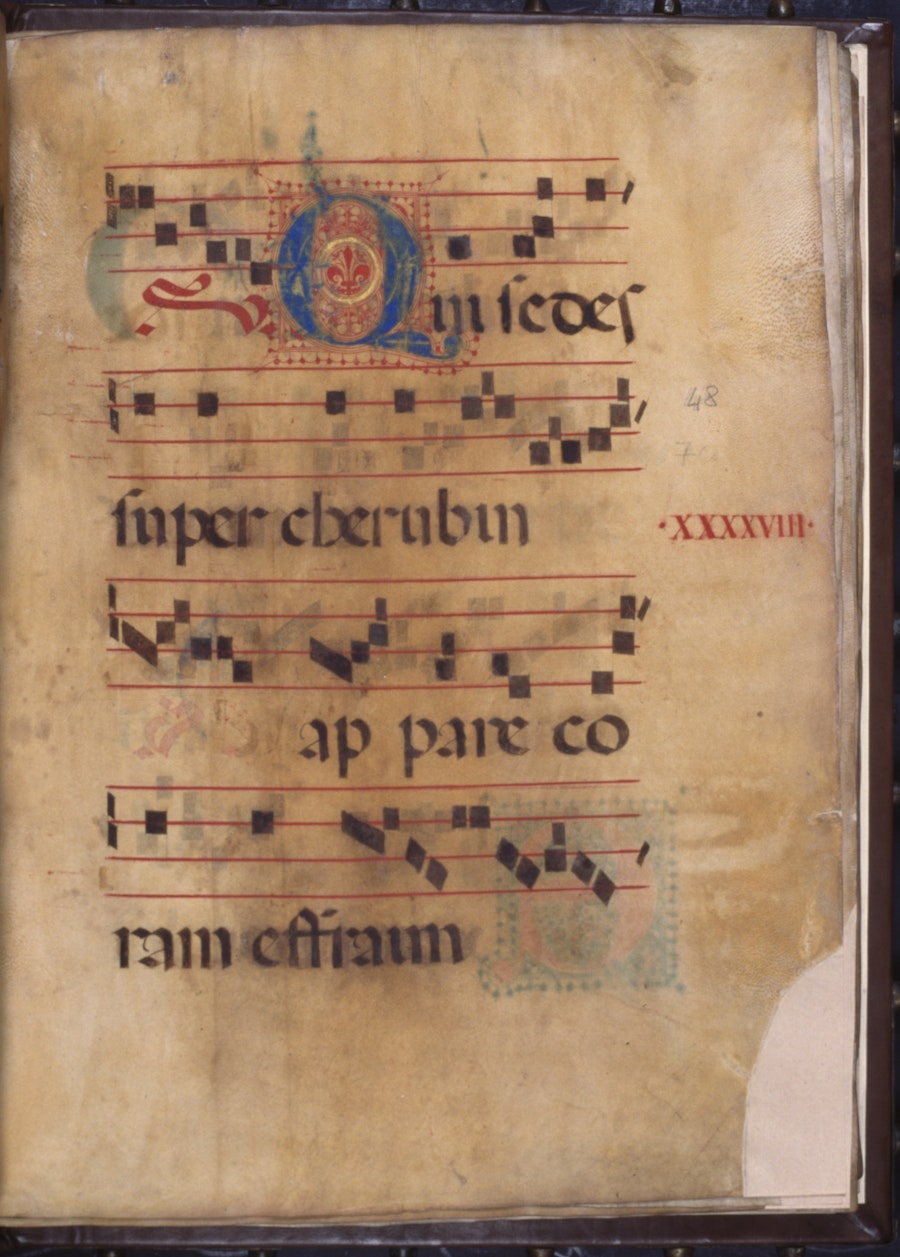 V. Qui sedes
48
super cherubin
·XXXXVIII·
ap pare co
ram effraim